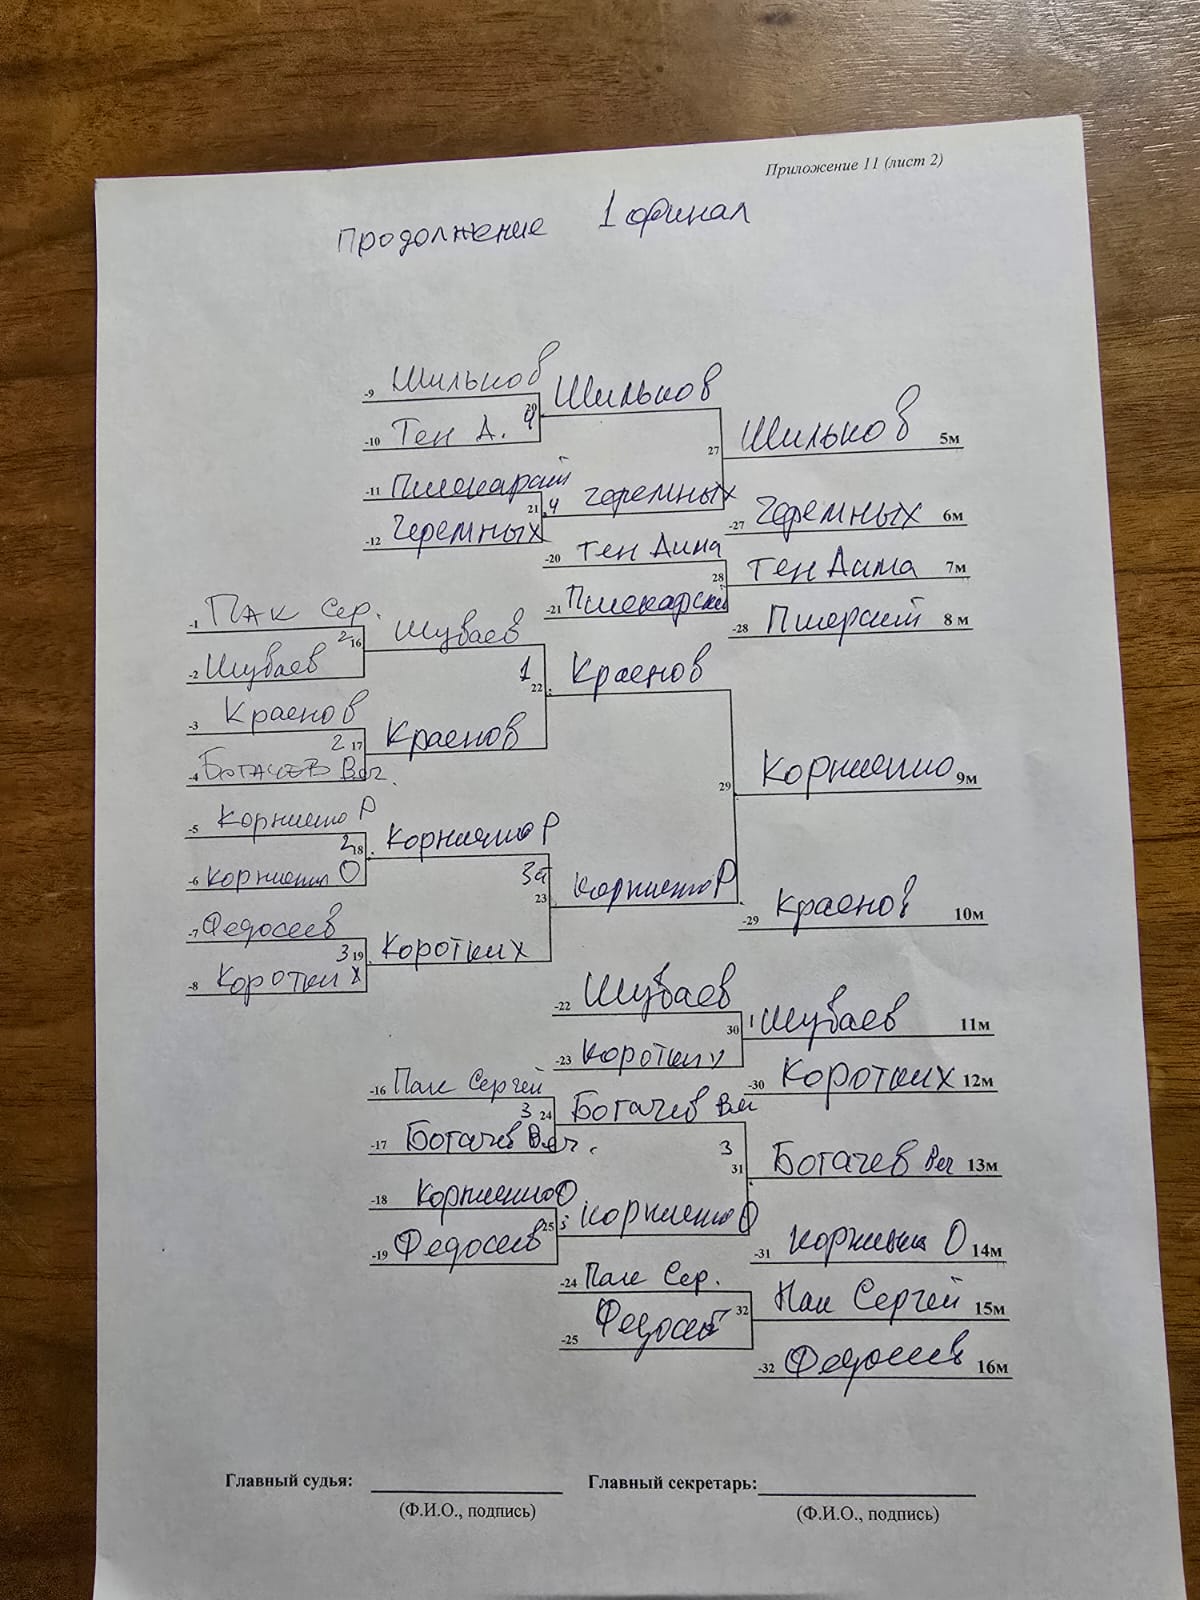 Приложение 11 (лист 2)
продолжение 1 финал
-9 Шильков
20 Шильков
-10 Тен Д. 4
27 Шильков 5м
-11
21 4 Черемных
-12 Черемных
-27 Черемных 6м
-20 Тен Дима
28 Тен Дима 7м
-21 Пшекарский
-28 8 м
-1 Пак Сер.
2 16 Шубаев
-2 Шубаев
1 22 Краснов
-3 Краснов
2 17 Краснов
-4 Богачев Вяч.
29 Корниенко 9м
-5 Корниенко Р
2 18 Корниенко Р
-6 Корниенко О
3 23 Корниенко Р
-7 Федосеев
3 19 Коротких
-8 Коротких
-29 Краснов 10м
-22 Шубаев
30 Шубаев 11м
-23 Коротких
-30 Коротких 12м
-16 Пак Сергей
3 24 Богачев Вяч
-17 Богачев Вяч.
3 31 Богачев Вяч 13м
-18 Корниенко О
25 3 Корниенко О
-19 Федосеев
-31 Корниенко О 14м
-24 Пак Сер.
32 Пак Сергей 15м
-25 Федосеев
-32 Федосеев 16м
Главный судья: Главный секретарь:
(Ф.И.О., подпись) (Ф.И.О., подпись)